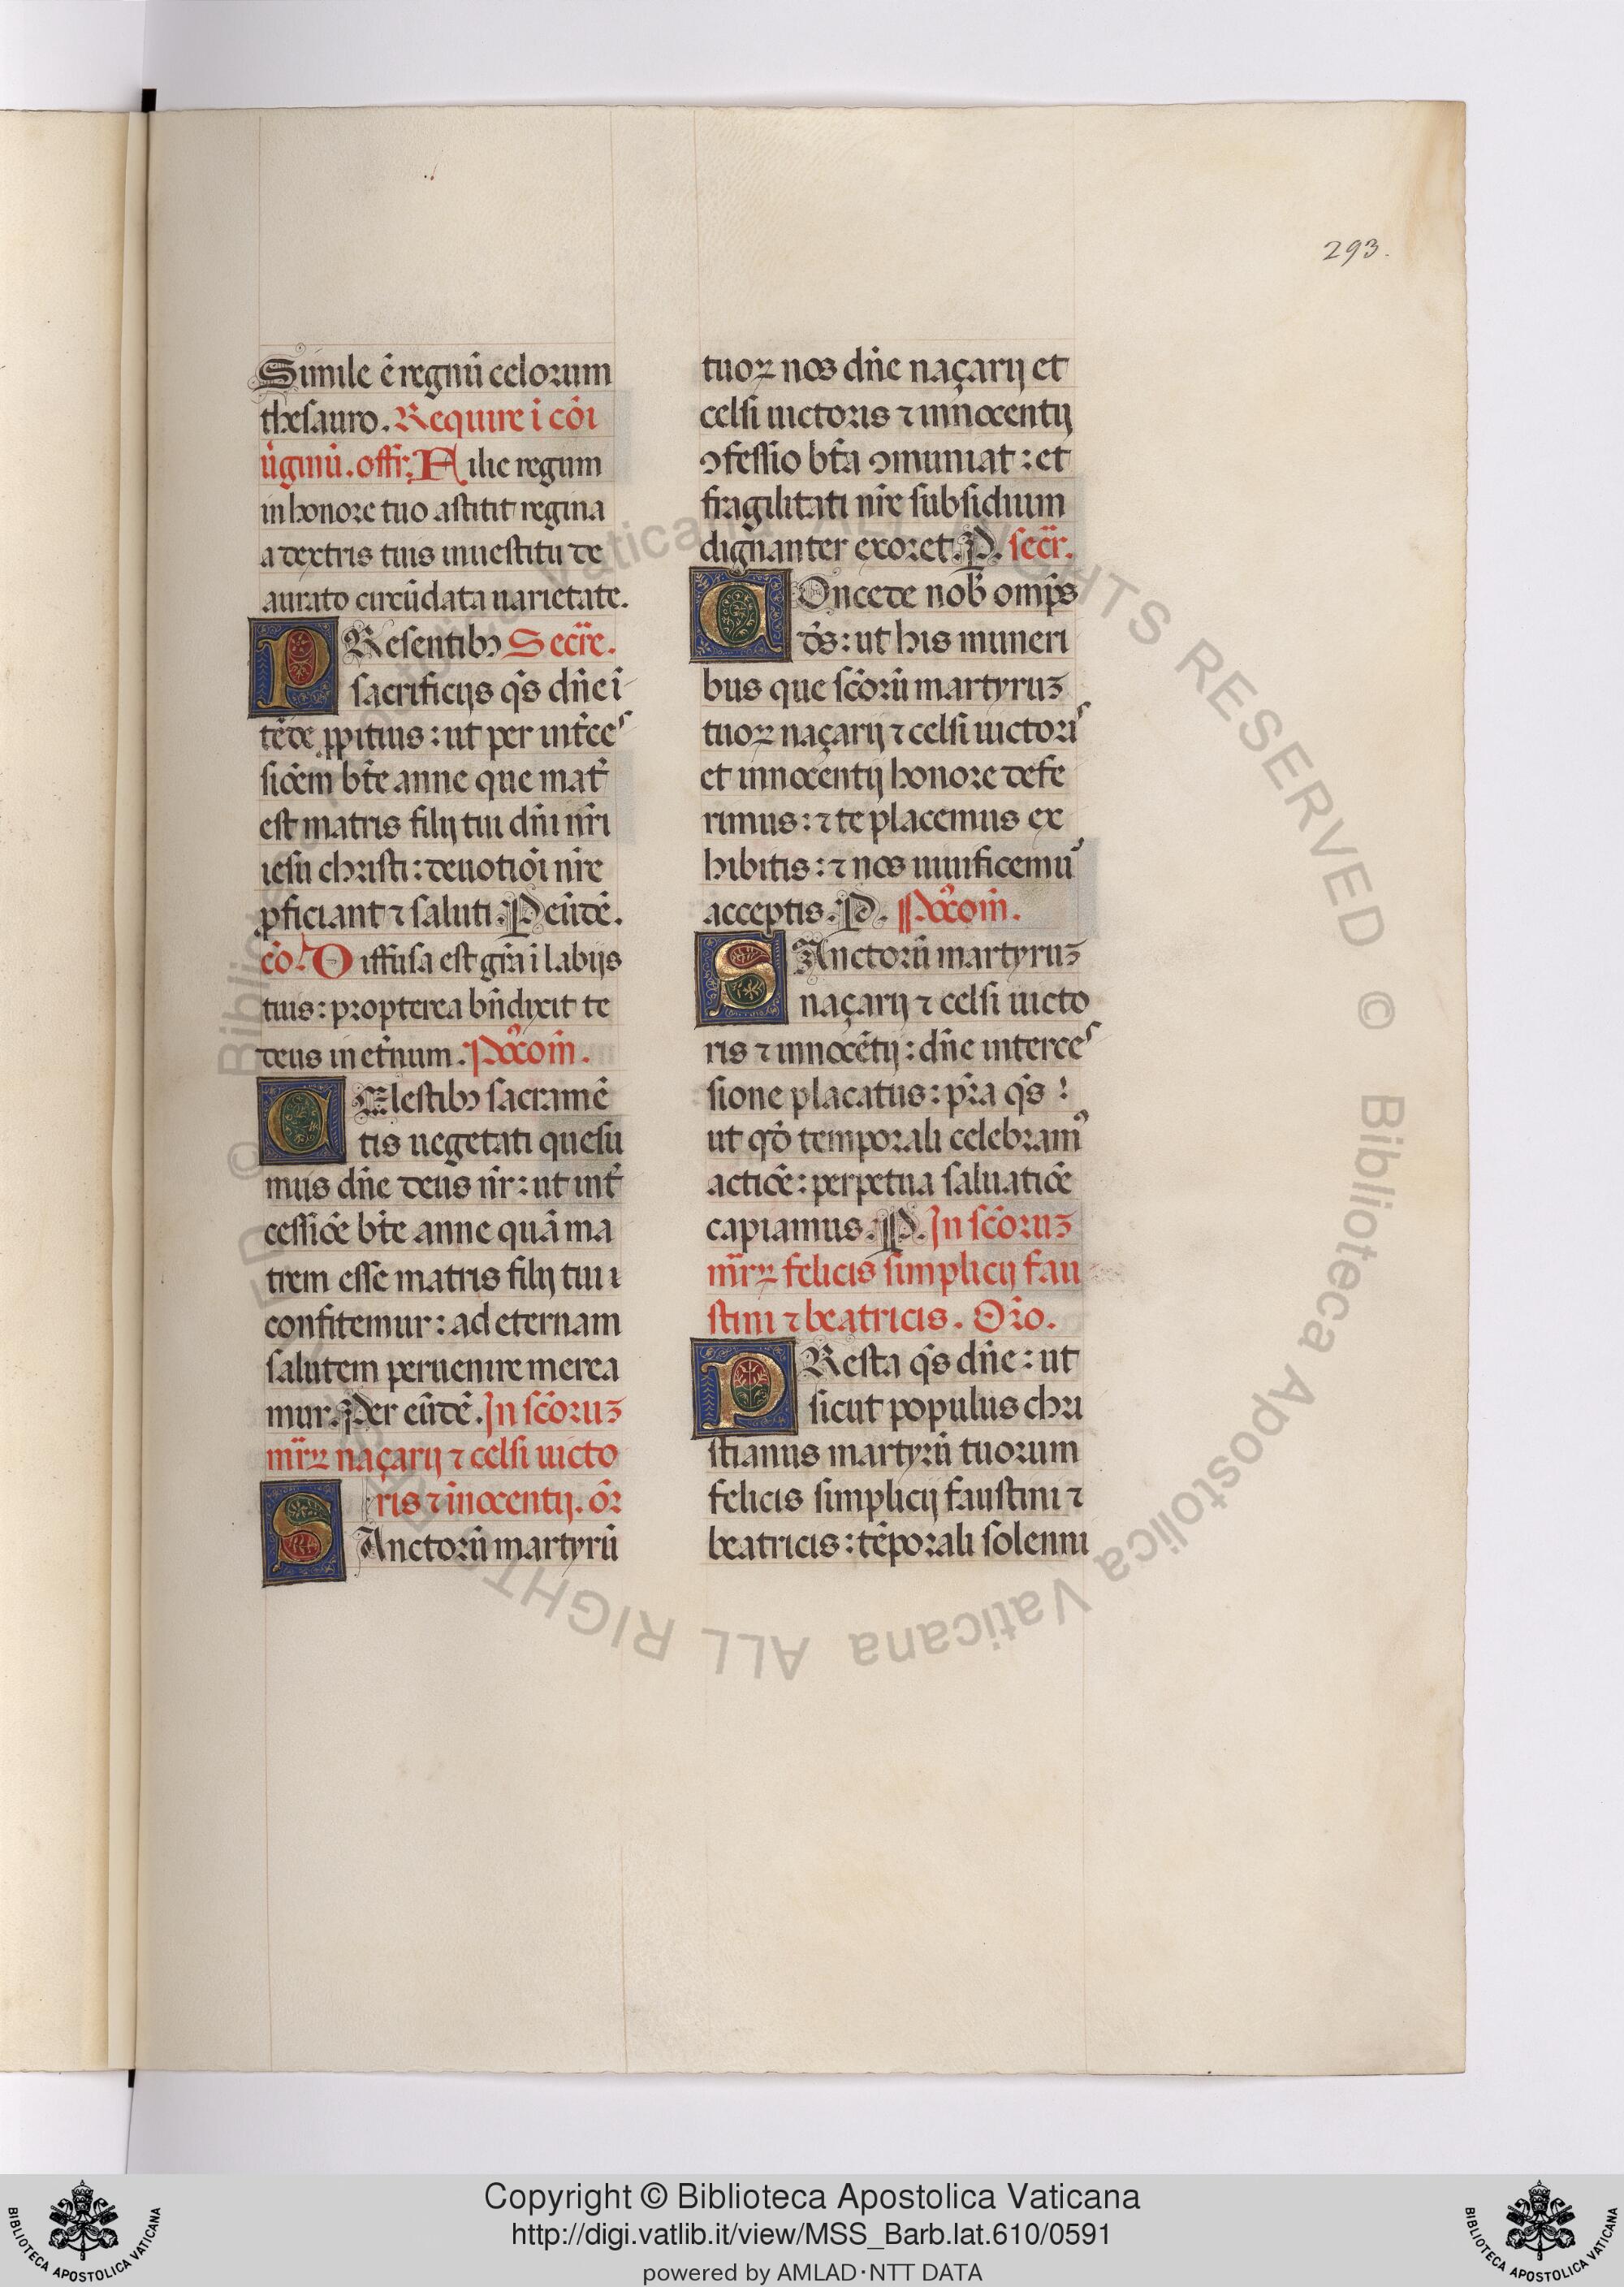 293.
Simile ē regnū celorum
thesauro. Require ī cōi
ūginū. offr̄. Filie regum
in honore tuo astitit regina
a dextris tuis in uestitu de
aurato circūdata uarietate.
PResentibꝫ Secr̄e.
sacrificijs q̄s dn̄e ī
tēde ꝓpitius : ut per int̄ces
siōem bt̄e anne que mat̄
est matris filij tui dn̄i nr̄i
iesu christi : deuotiōi nr̄e
ꝓficiant ⁊ saluti. P eūdē.
cō. Diffusa est gr̄a ī labijs
tuis : propterea bn̄dixit te
deus in et̄num. Pꝰcoīn.
CElestibꝫ sacramē
tis uegetati quesu
mus dn̄e deus nr̄ : ut int̄
cessiōe bt̄e anne quā ma
trem esse matris filij tui ı
confitemur : ad eternam
salutem peruenire merea
mur. Per eūdē. In scōruꝫ
mr̄ꝝ naçarij ⁊ celsi uicto
ris ⁊ inocentij. or̄
SAnctorū martyrū
tuoꝝ nos dn̄e naçarij et
celsi uictoris ⁊ innocentij
ꝯfessio bt̄a ꝯmuniat : et
fragilitati nr̄e subsidium
dignanter exoret. P. secr̄.
COncede nob̄ omp̄s
ds̄ : ut his muneri
bus que scōrū martyruꝫ
tuoꝝ naçarij ⁊ celsi uictoris
et innocentij honore defe
rimus : ⁊ te placemus ex
hibitis : ⁊ nos uiuificemur
acceptis. P. Pꝰcoīn.
SAnctorū martyruꝫ
naçarij ⁊ celsi uicto
ris ⁊ innocētij : dn̄e interces
sione placatus : pr̄a q̄s :
ut qd̄ temporali celebramꝰ
actiōe : perpetua saluatiōe
capiamus. P. In scōruꝫ
mr̄ꝝ felicis simplicij fau
stini ⁊ beatricis. Or̄o.
PResta q̄s dn̄e : ut
sicut populus chri
stianus martyrū tuorum
felicis simplicij faustini ⁊
beatricis : tēporali solenni
Copyright © Biblioteca Apostolica Vaticana
http://digi.vatlib.it/view/MSS_Barb.lat.610/0591
powered by AMLAD·NTT DATA
BIBLIOTECA APOSTOLICA VATICANA
BIBLIOTECA APOSTOLICA VATICANA
© Biblioteca Apostolica Vaticana ALL RIGHTS RESERVED © Biblioteca Apostolica Vaticana ALL RIGHTS RESERVED